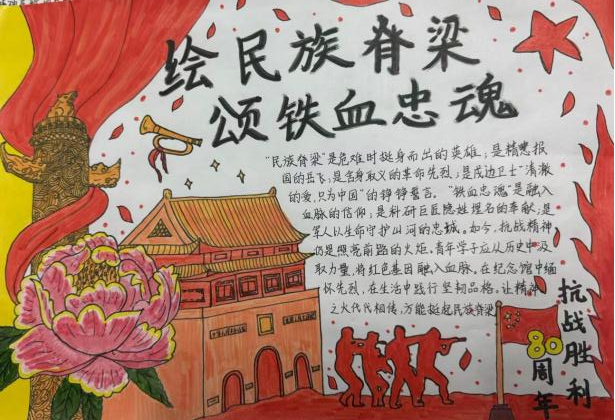 绘民族脊梁
颂铁血忠魂
"民族脊梁"是危难时挺身而出的英雄;是精忠报
国的岳飞,是舍身取义的革命先烈;是戍边卫士"清澈
的爱,只为中国"的铮铮誓言。"铁血忠魂"是融入
血脉的信仰;是科研巨匠隐姓埋名的奉献;是
军人以生命守护山河的忠诚。如今,抗战精神
仍是照亮前路的火炬。青年学子应从历史中汲
取力量,将红色基因融入血脉。在纪念馆中缅
怀先烈,在生活中践行坚韧品格。让精神
之火代代相传,方能挺起民族脊梁
抗战胜利
80周年